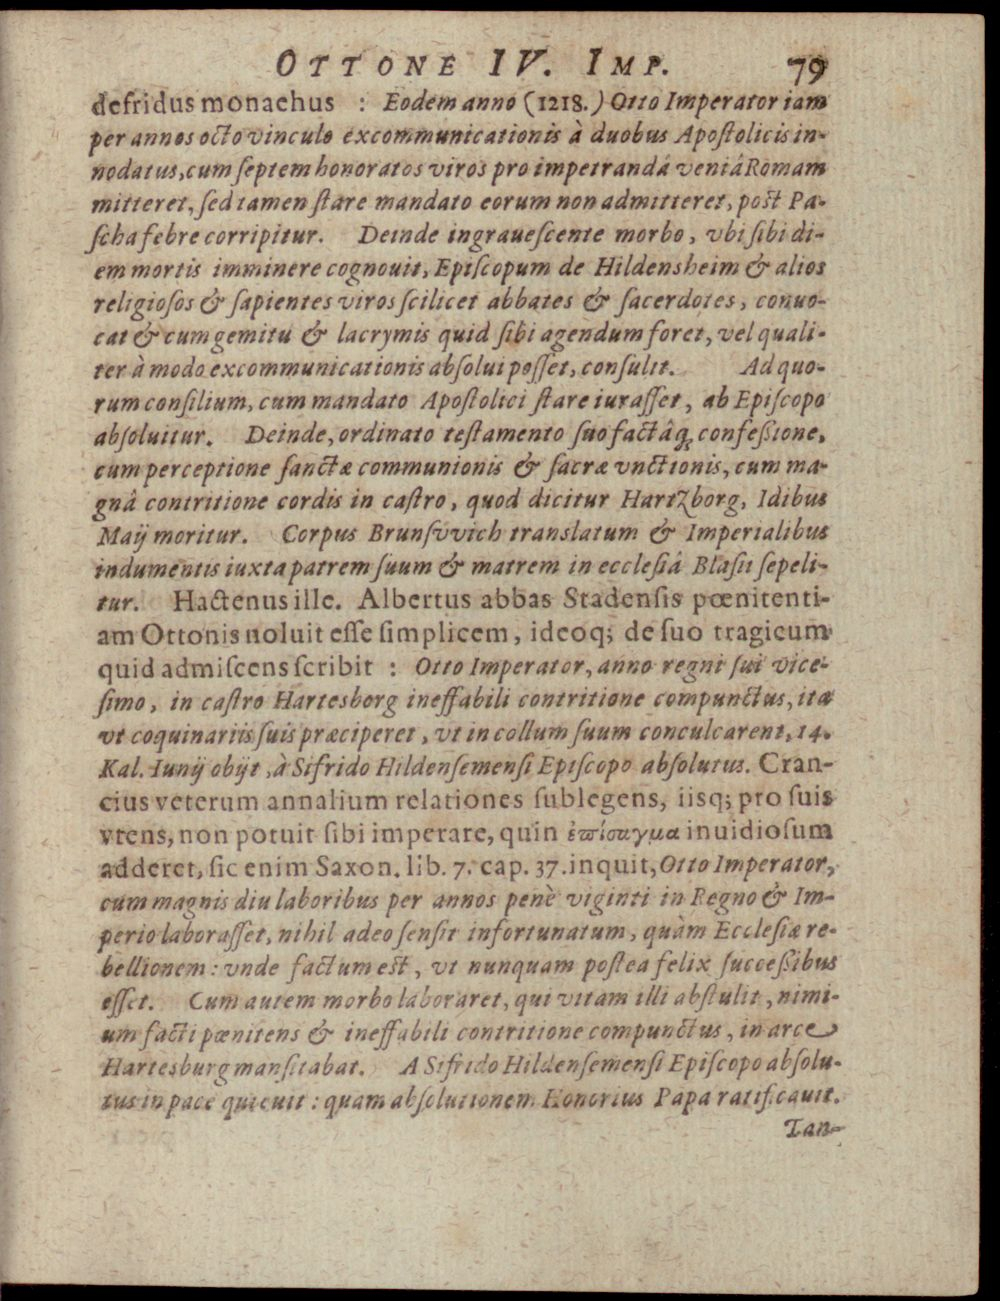 OTTONE IV. IMP. 79
defridus monachus : Eodem anno (1218.) Otto Imperator iam
per annos octo vinculo excommunicationis à duobus Apostolicis in-
nodatus, cum septem honoratos viros pro impetrandâ veniâ Romam
mitteret, sed tamen stare mandato eorum non admitteret, post Pa-
scha febre corripitur. Deinde ingrauescente morbo, vbi sibi di-
em mortis imminere cognouit, Episcopum de Hildensheim & alios
religiosos & sapientes viros scilicet abbates & sacerdotes, conuo-
cat & cum gemitu & lacrymis quid sibi agendum foret, vel quali-
ter à modo excommunicationis absolui posset, consulit. Ad quo-
rum consilium, cum mandato Apostolici stare iurasset, ab Episcopo
absoluitur. Deinde, ordinato testamento suo factâq; confessione,
cum perceptione sanctæ communionis & sacræ vnctionis, cum ma-
gnâ contritione cordis in castro, quod dicitur Hartzborg, Idibus
Maij moritur. Corpus Brunsvvich translatum & Imperialibus
indumentis iuxta patrem suum & matrem in ecclesiâ Blasii sepeli-
tur. Hactenus ille. Albertus abbas Stadensis pœnitenti-
am Ottonis noluit esse simplicem, ideoq; de suo tragicum
quid admiscens scribit : Otto Imperator, anno regni sui vice-
simo, in castro Hartesborg ineffabili contritione compunctus, ita
vt coquinariis suis præciperet, vt in collum suum conculcarent, 14.
Kal. Iunij obijt, à Sifrido Hildensemensi Episcopo absolutus. Cran-
cius veterum annalium relationes sublegens, iisq; pro suis
vtens, non potuit sibi imperare, quin ἐπίσαγμα inuidiosum
adderet, sic enim Saxon. lib. 7. cap. 37. inquit, Otto Imperator,
cum magnis diu laboribus per annos penè viginti in Regno & Im-
perio laborasset, nihil adeo sensit infortunatum, quàm Ecclesiæ re-
bellionem: vnde factum est, vt nunquam postea felix successibus
esset. Cum autem morbo laboraret, qui vitam illi abstulit, nimi-
um facti pœnitens & ineffabili contritione compunctus, in arce
Hartesburg mansitabat. A Sifrido Hildensemensi Episcopo absolu-
tus in pace quieuit: quam absolutionem Honorius Papa ratificauit.
Tan-